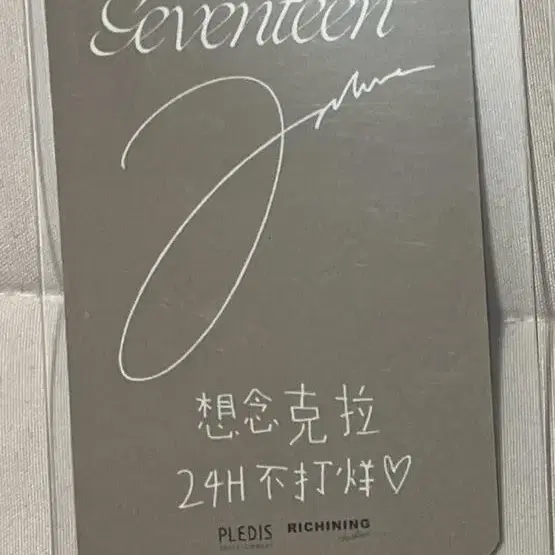 Seventeen
Joshua
想念克拉
24H不打烊♡
PLEDIS
ENTERTAINMENT
RICHINING